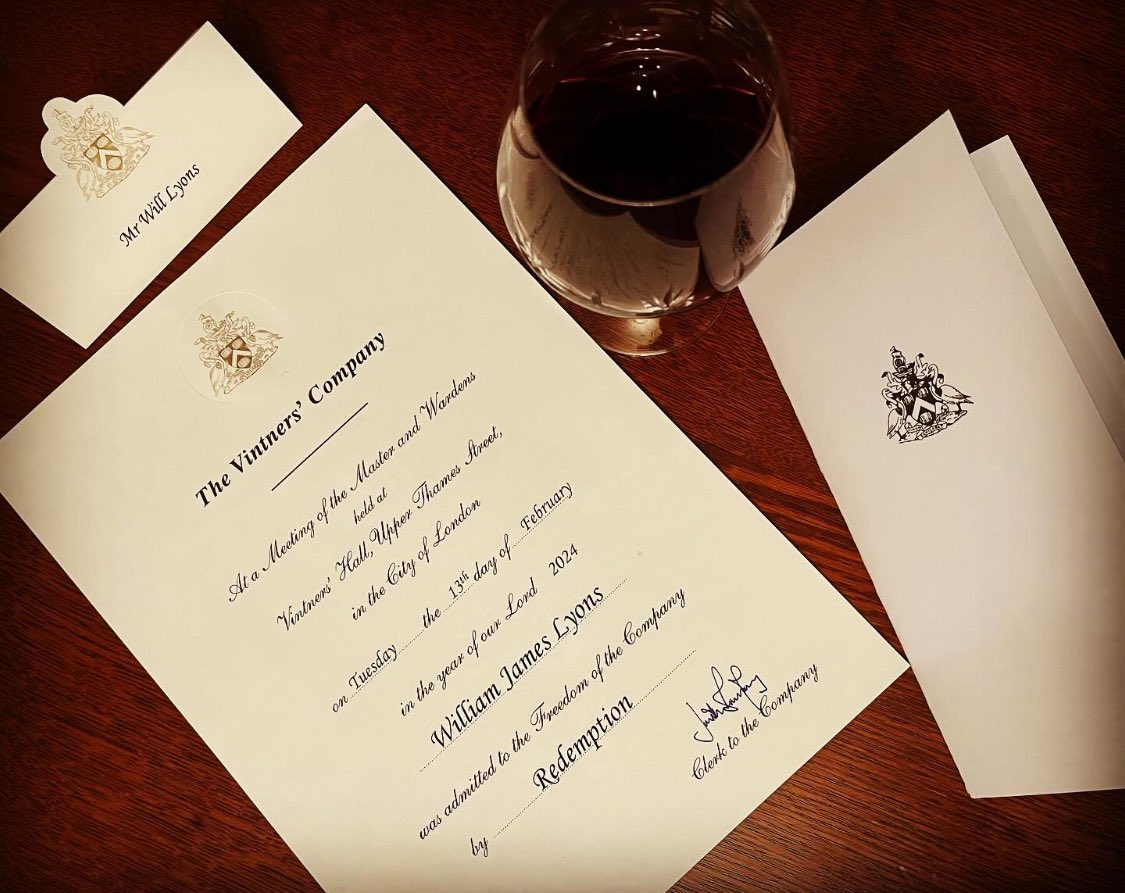 Mr Will Lyons
The Vintners' Company
At a Meeting of the Master and Wardens
held at
Vintners' Hall, Upper Thames Street,
in the City of London
on Tuesday the 13th day of February
in the year of our Lord 2024
William James Lyons
was admitted to the Freedom of the Company
by Redemption
Clerk to the Company